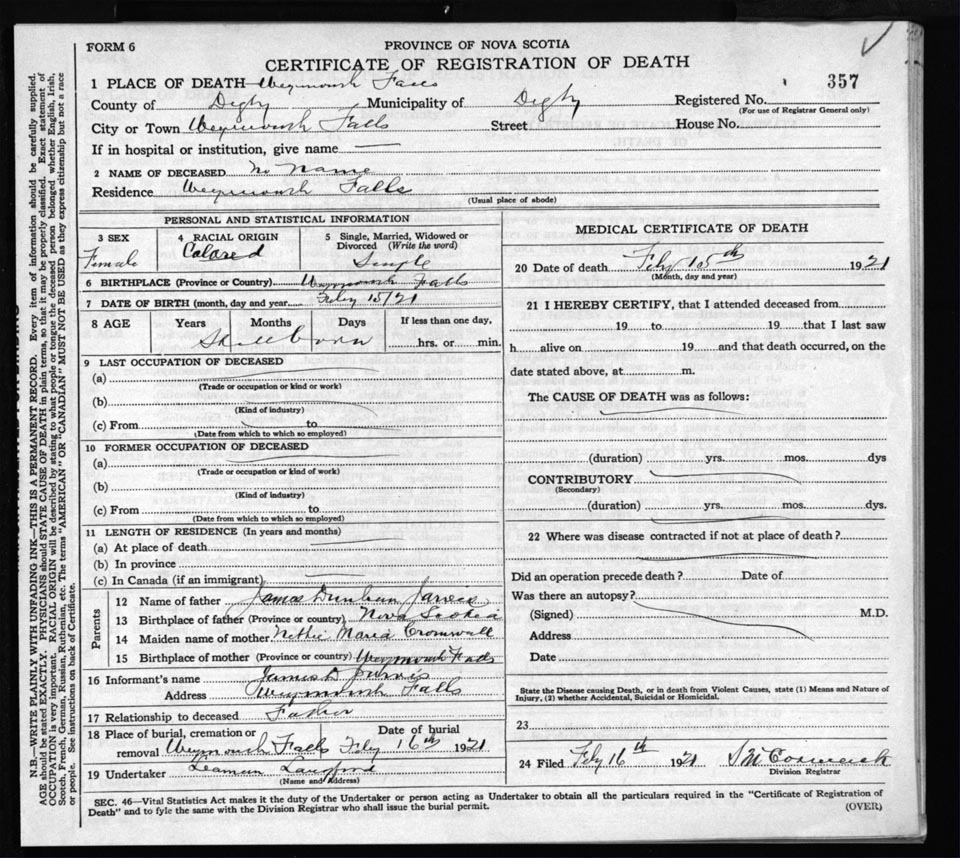 FORM 6
PROVINCE OF NOVA SCOTIA
CERTIFICATE OF REGISTRATION OF DEATH
357
1 PLACE OF DEATH Weymouth Falls
County of Digby Municipality of Digby Registered No.
(For use of Registrar General only)
City or Town Weymouth Falls Street House No.
If in hospital or institution, give name —
2 NAME OF DECEASED No Name
Residence Weymouth Falls
(Usual place of abode)
PERSONAL AND STATISTICAL INFORMATION
3 SEX Female
4 RACIAL ORIGIN Colored
5 Single, Married, Widowed or Divorced (Write the word) Single
6 BIRTHPLACE (Province or Country) Weymouth Falls
7 DATE OF BIRTH (month, day and year) Feby 15/21
8 AGE Years Months Days If less than one day,
Stillborn hrs. or min.
9 LAST OCCUPATION OF DECEASED
(a)
(Trade or occupation or kind or work)
(b)
(Kind of industry)
(c) From to
(Date from which to which so employed)
10 FORMER OCCUPATION OF DECEASED
(a)
(Trade or occupation or kind of work)
(b)
(Kind of industry)
(c) From to
(Date from which to which so employed)
11 LENGTH OF RESIDENCE (In years and months)
(a) At place of death
(b) In province
(c) In Canada (if an immigrant)
Parents
12 Name of father James Dunham Jarvis
13 Birthplace of father (Province or country) Nova Scotia
14 Maiden name of mother Nettie Maria Cromwell
15 Birthplace of mother (Province or country) Weymouth Falls
16 Informant's name James D Jarvis
Address Weymouth Falls
17 Relationship to deceased Father
18 Place of burial, cremation or removal Weymouth Falls Date of burial Feby 16th 1921
19 Undertaker Leaman Langford
(Name and Address)
MEDICAL CERTIFICATE OF DEATH
20 Date of death Feby 15th 1921
(Month, day and year)
21 I HEREBY CERTIFY, that I attended deceased from
19 to 19 that I last saw
h alive on 19 and that death occurred, on the
date stated above, at m.
The CAUSE OF DEATH was as follows:
(duration) yrs. mos. dys
CONTRIBUTORY
(Secondary)
(duration) yrs. mos. dys.
22 Where was disease contracted if not at place of death?
Did an operation precede death? Date of
Was there an autopsy?
(Signed) M.D.
Address
Date
State the Disease causing Death, or in death from Violent Causes, state (1) Means and Nature of
Injury, (2) whether Accidental, Suicidal or Homicidal.
23
24 Filed Feby 16th 1921 S McCormack
Division Registrar
SEC. 46—Vital Statistics Act makes it the duty of the Undertaker or person acting as Undertaker to obtain all the particulars required in the "Certificate of Registration of
Death" and to fyle the same with the Division Registrar who shall issue the burial permit.
(OVER)
N.B.—WRITE PLAINLY WITH UNFADING INK—THIS IS A PERMANENT RECORD. Every item of information should be carefully supplied.
AGE should be stated EXACTLY. PHYSICIANS should STATE CAUSE OF DEATH in plain terms, so that it may be properly classified. Exact statement of
OCCUPATION is very important. RACIAL ORIGIN will be described by stating to what people or tongue the deceased person belonged whether English, Irish,
Scotch, French, German, Russian, Ruthenian, etc. The terms "AMERICAN" OR "CANADIAN" MUST NOT BE USED as they express citizenship but not a race
or people. See instructions on back of Certificate.